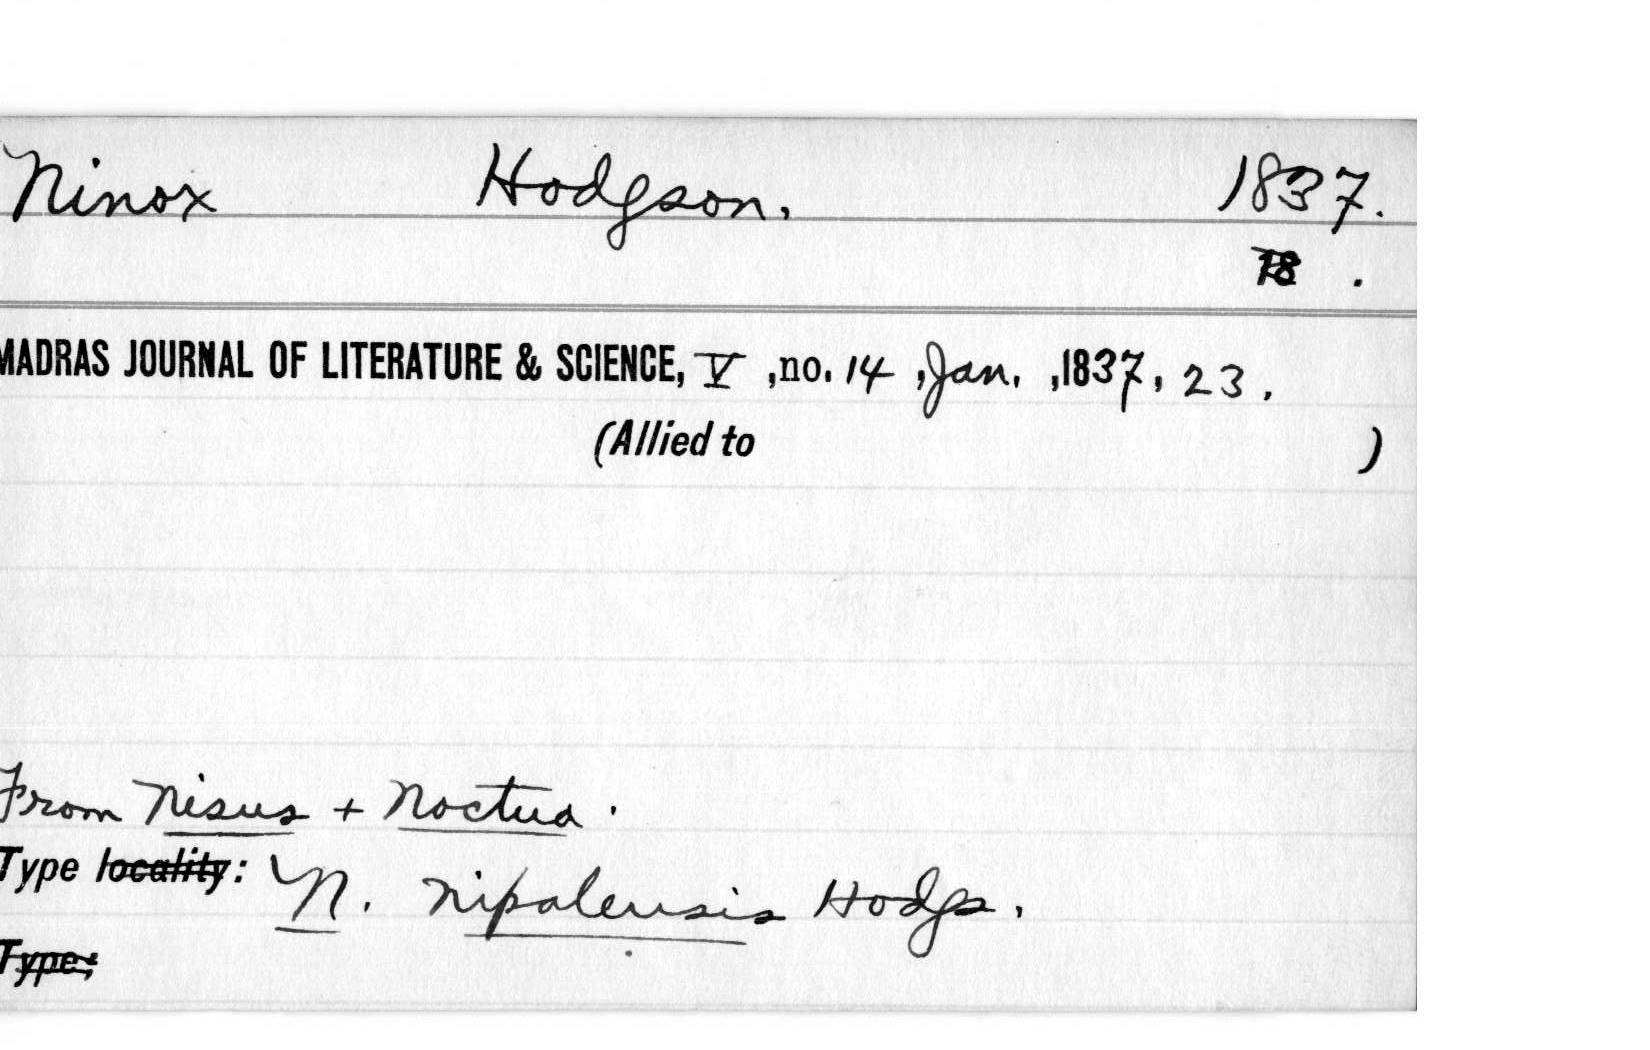 Ninox Hodgson. 1837.
18 .
MADRAS JOURNAL OF LITERATURE & SCIENCE, V ,no. 14 ,Jan. ,1837, 23.
(Allied to )
From Nisus + Noctua.
Type locality: N. nipalensis Hodgs.
Type: